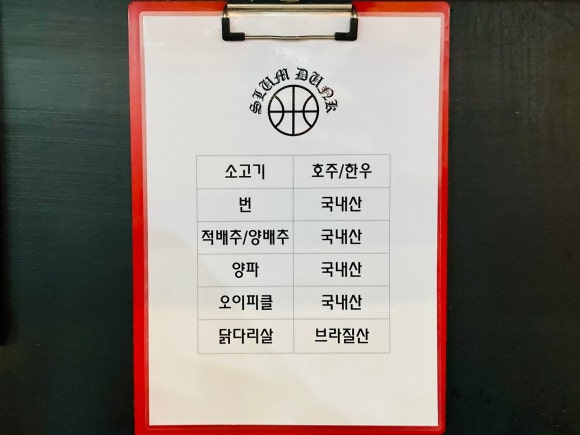 SLUM DUNK
소고기 호주/한우
번 국내산
적배추/양배추 국내산
양파 국내산
오이피클 국내산
닭다리살 브라질산